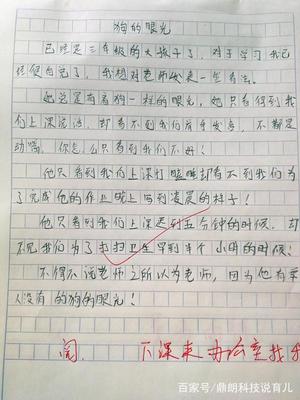 狗的眼光
已经是三年级的大孩子了,对于学习我已
经很自觉了,我想对老师发表一些看法。
她总是有着狗一样的眼光,她只看得到我
们上课说话,却看不到我们留守发本,不都是
动嘴,你怎么只看到我们不好!
他只看到我们上课打瞌睡却看不到我们为
了完成他的作业晚上写到凌晨的样子!
他只看到我们上课迟到五分钟的时候,却
不见我们为了打扫卫生早到半个小时的时候!
不得不说老师之所以为老师,因为他有
人没有的狗的眼光!
阅 下课来办公室找我
百家号/鼎朗科技说育儿